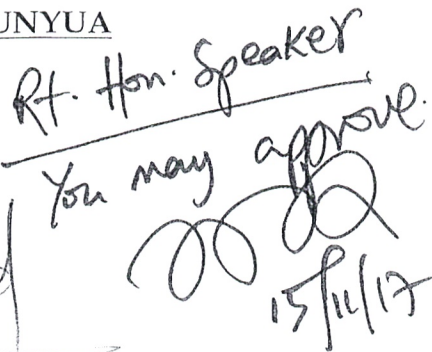 UNYUA
Rt. Hon. Speaker
You may approve.
15/11/17